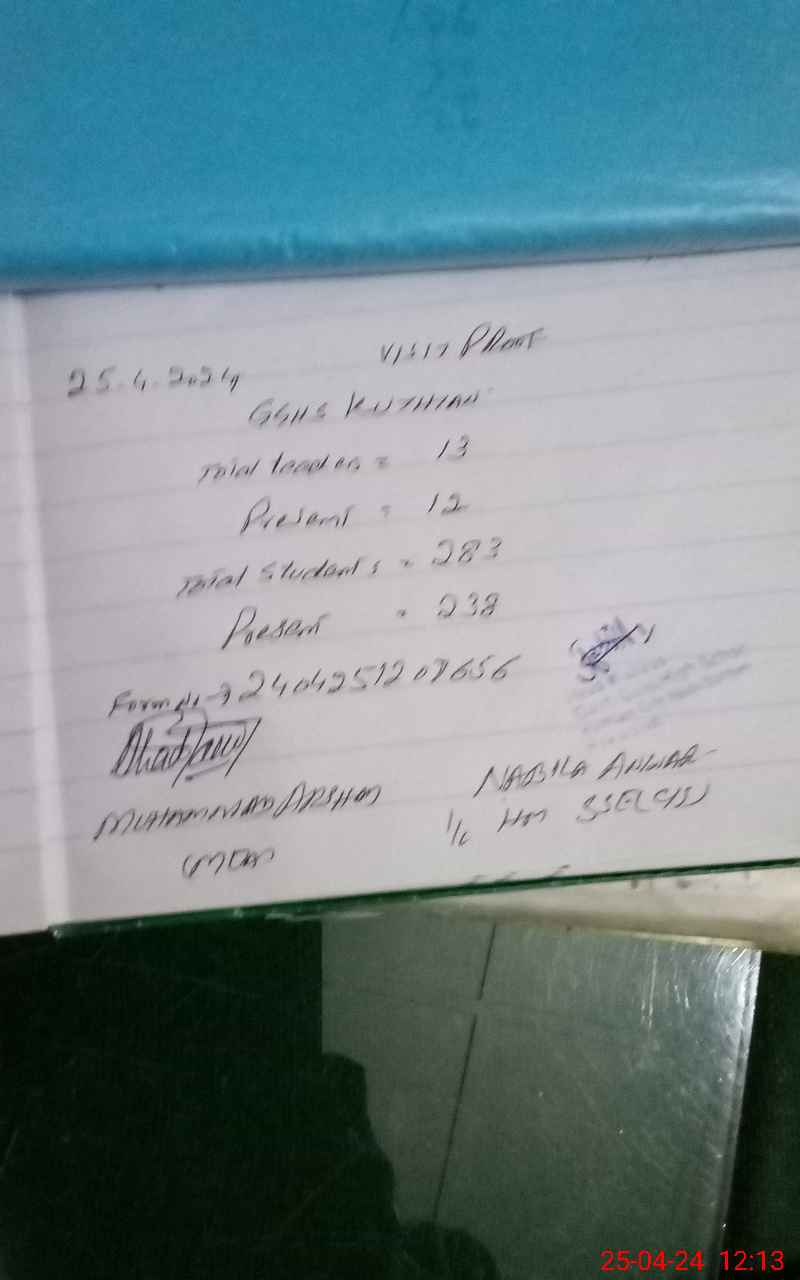 VISIT PROOF
25.4.2024
GGHS KUTHIAN
Total teachers = 13
Present = 12
Total Students = 283
Present = 238
Form No → 2404251208656
MUHAMMAD ARSHAD
NABILA ANWAR
MEA
I/C HM SSE(CS)
25-04-24 12:13